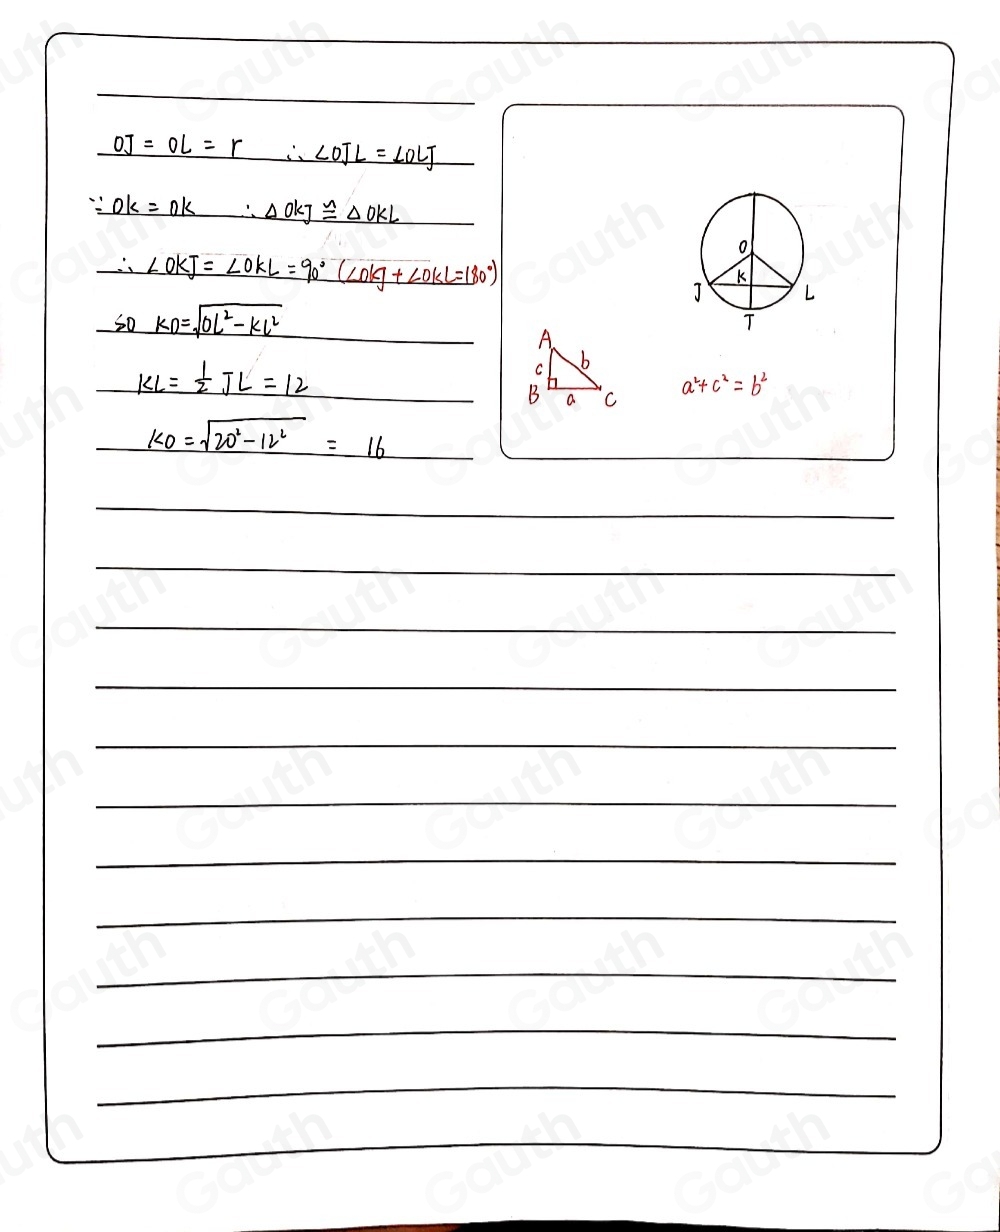 OJ = OL = r ∴ ∠OJL = ∠OLJ
∵ OK = OK ∴ △OKJ ≌ △OKL
∴ ∠OKJ = ∠OKL = 90° (∠OKJ + ∠OKL = 180°)
so KO = √(OL² - KL²)
KL = 1/2 JL = 12
KO = √(20² - 12²) = 16
O
K
J
L
T
A
c
b
B
a
C
a² + c² = b²
Gauth